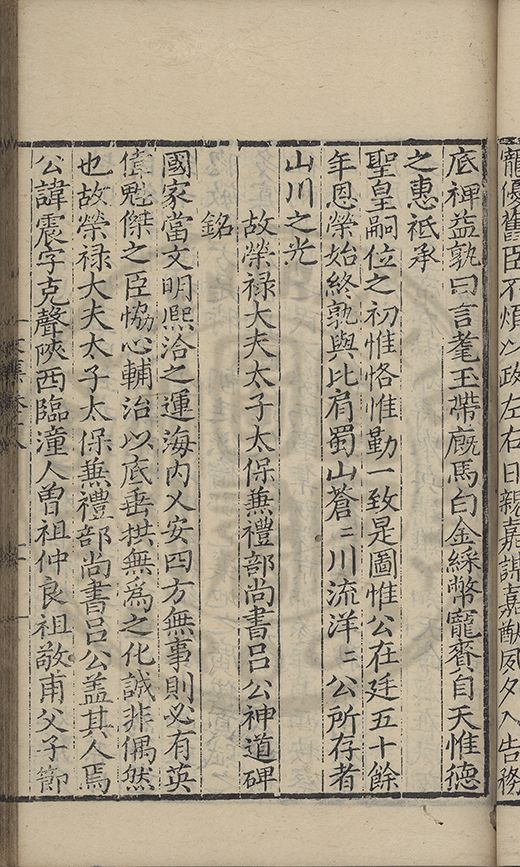 寵優舊臣不煩以政左右日親嘉謀嘉猷夙夕入告務
底裨益孰曰言耄玉帶廐馬白金綵幣寵賚自天惟德
之惠祗承
聖皇嗣位之初惟恪惟勤一致是圖惟公在廷五十餘
年恩榮始終孰與比肩蜀山蒼〻川流洋〻公所存者
山川之光
故榮禄大夫太子太保兼禮部尚書吕公神道碑
銘
國家當文明熙洽之運海内乂安四方無事則必有英
偉魁傑之臣恊心輔治以底垂拱無爲之化誠非偶然
也故榮禄大夫太子太保兼禮部尚書吕公蓋其人焉
公諱震字克聲陜西臨潼人曾祖仲良祖敬甫父子節